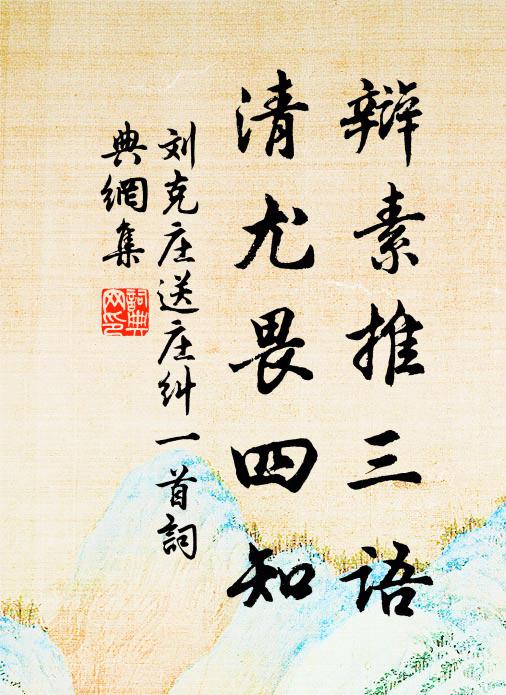 辯素推三语
清尤畏四知
刘克庄送庄纠一首詞
典網集
詞典
网印